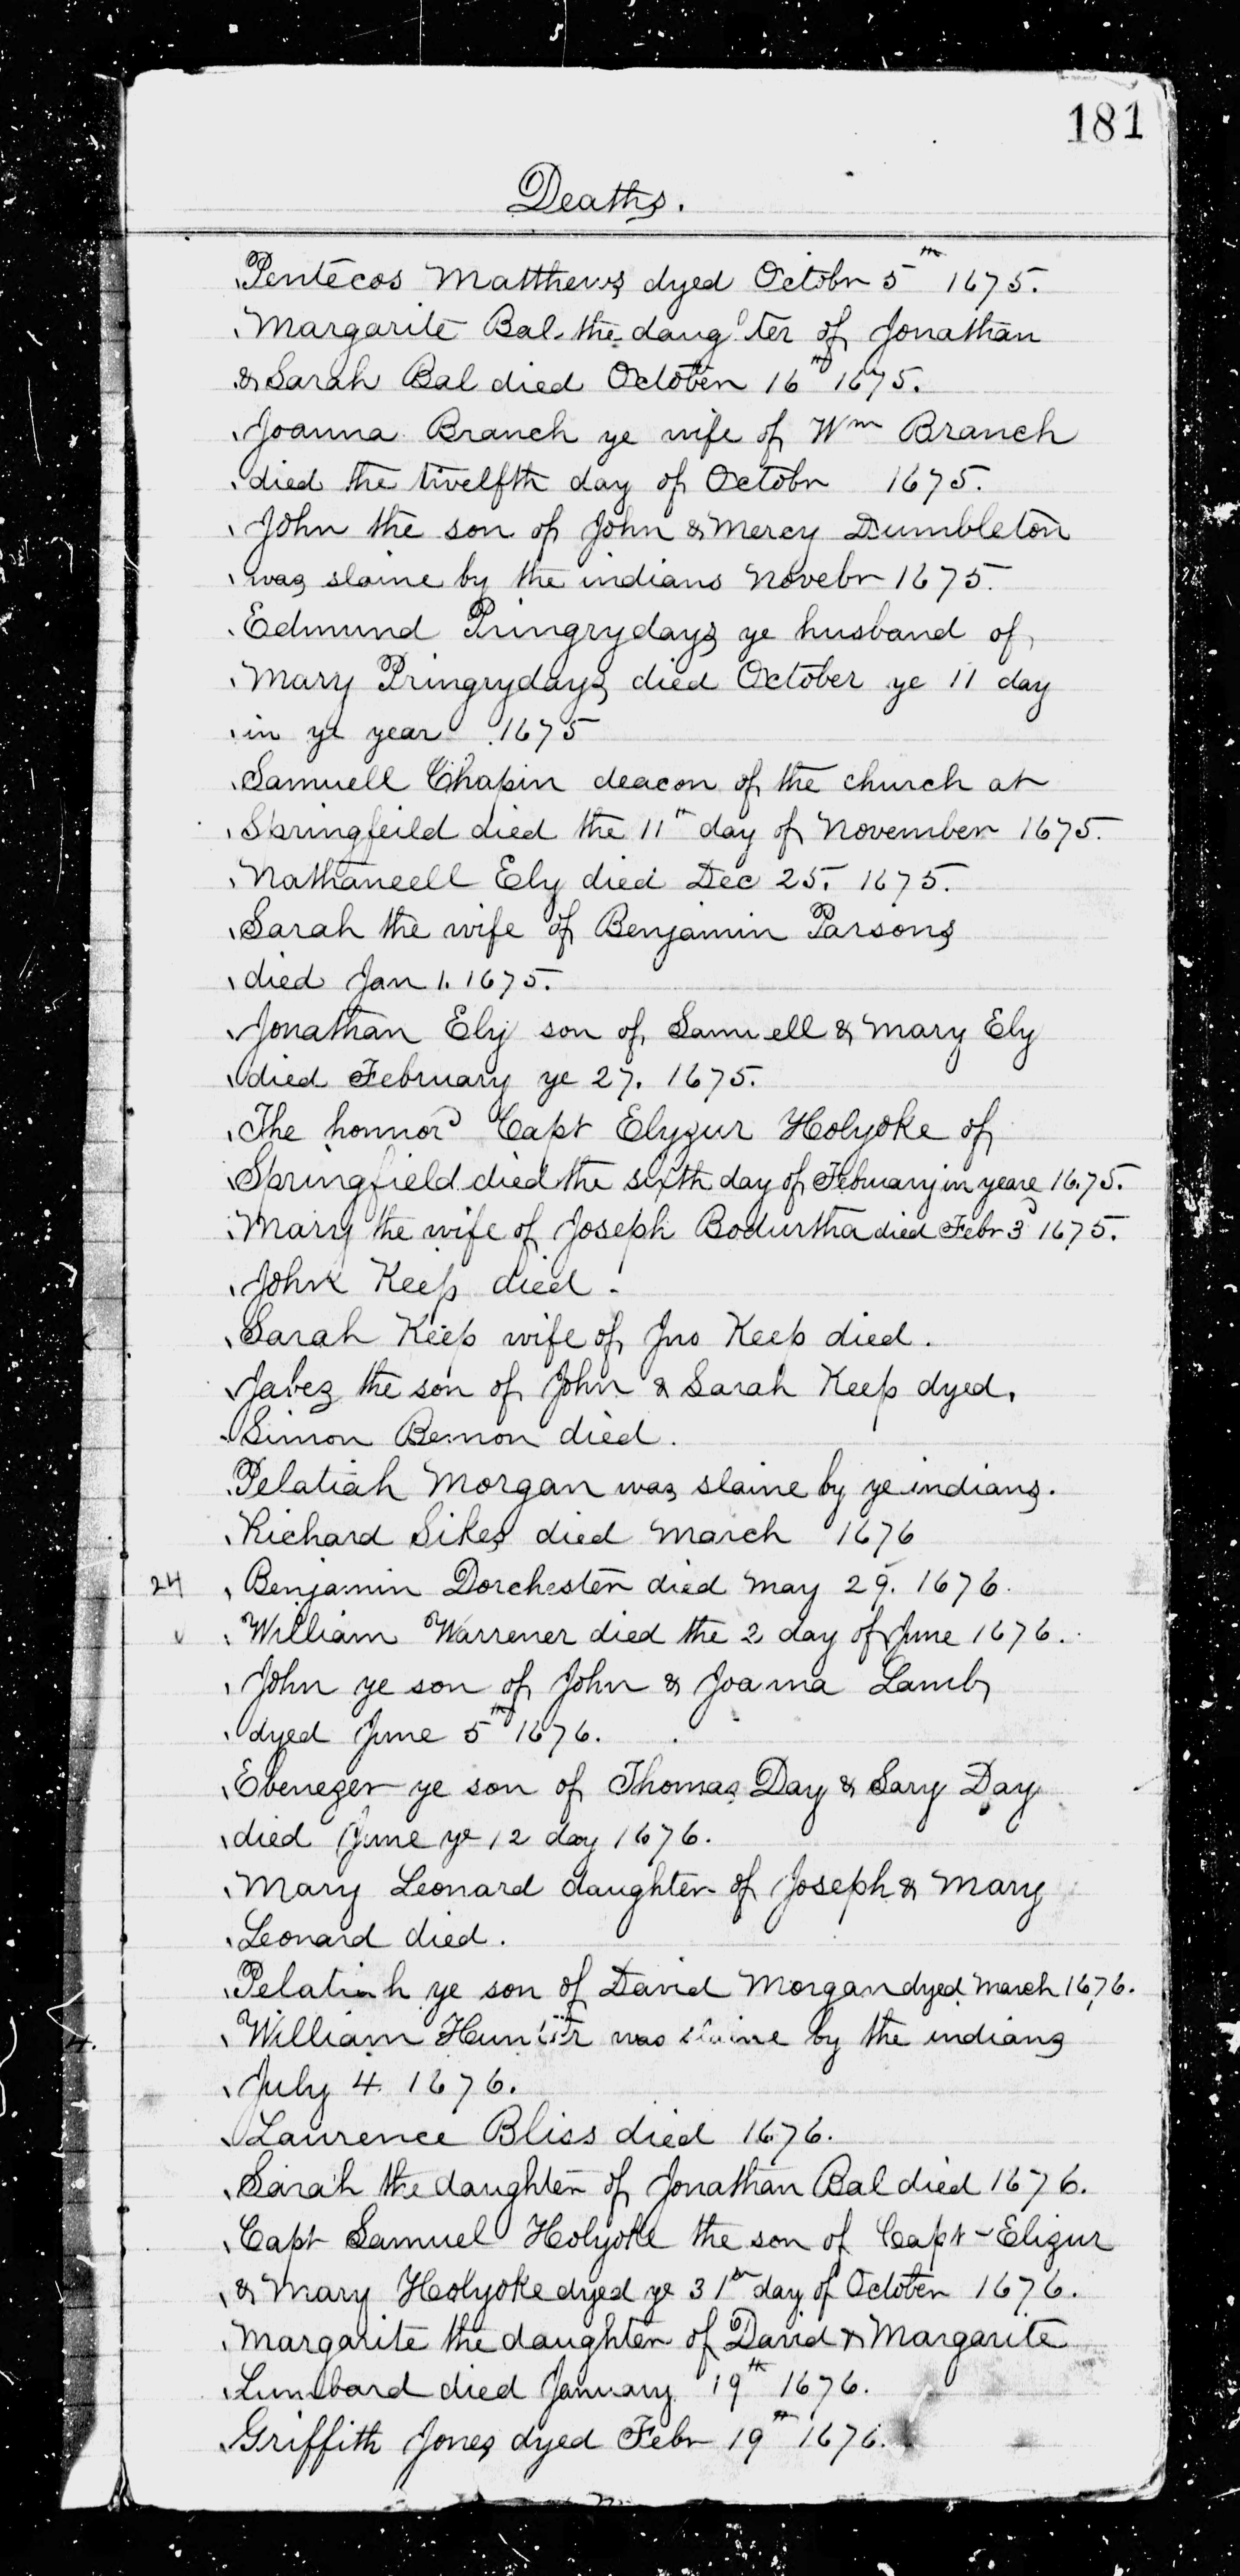 181
Deaths.
Pentecos Matthews dyed Octobr 5th 1675.
Margarite Bal the daughter of Jonathan
& Sarah Bal died October 16th 1675.
Joanna Branch ye wife of Wm Branch
died the twelfth day of Octobr 1675.
John the son of John & Mercy Dumbleton
was slaine by the indians Novebr 1675.
Edmund Pringrydays ye husband of
Mary Pringrydays died October ye 11 day
in ye year 1675
Samuell Chapin deacon of the church at
Springfeild died the 11th day of November 1675.
Nathaneell Ely died Dec 25. 1675.
Sarah the wife of Benjamin Parsons
died Jan 1. 1675.
Jonathan Ely son of Samuell & Mary Ely
died February ye 27. 1675.
The honnord Capt Elyzur Holyoke of
Springfield died the sixth day of February in yeare 1675.
Mary the wife of Joseph Bodurtha died Febr 3d 1675.
John Keep died.
Sarah Keep wife of Jno Keep died.
Jabez the son of John & Sarah Keep dyed.
Simon Bemon died.
Pelatiah Morgan was slaine by ye indians.
Richard Sikes died March 1676
24 Benjamin Dorchester died May 29. 1676.
William Warrener died the 2 day of June 1676.
John ye son of John & Joanna Lamb
dyed June 5th 1676.
Ebenezer ye son of Thomas Day & Sary Day
died June ye 12 day 1676.
Mary Leonard daughter of Joseph & Mary
Leonard died.
Pelatiah ye son of David Morgan dyed March 1676.
William Hunter was slaine by the indians
July 4. 1676.
Laurence Bliss died 1676.
Sarah the daughter of Jonathan Bal died 1676.
Capt Samuel Holyoke the son of Capt Elizur
& Mary Holyoke dyed ye 31th day of October 1676.
Margarite the daughter of David & Margarite
Lumbard died January 19th 1676.
Griffith Jones dyed Febr 19th 1676.